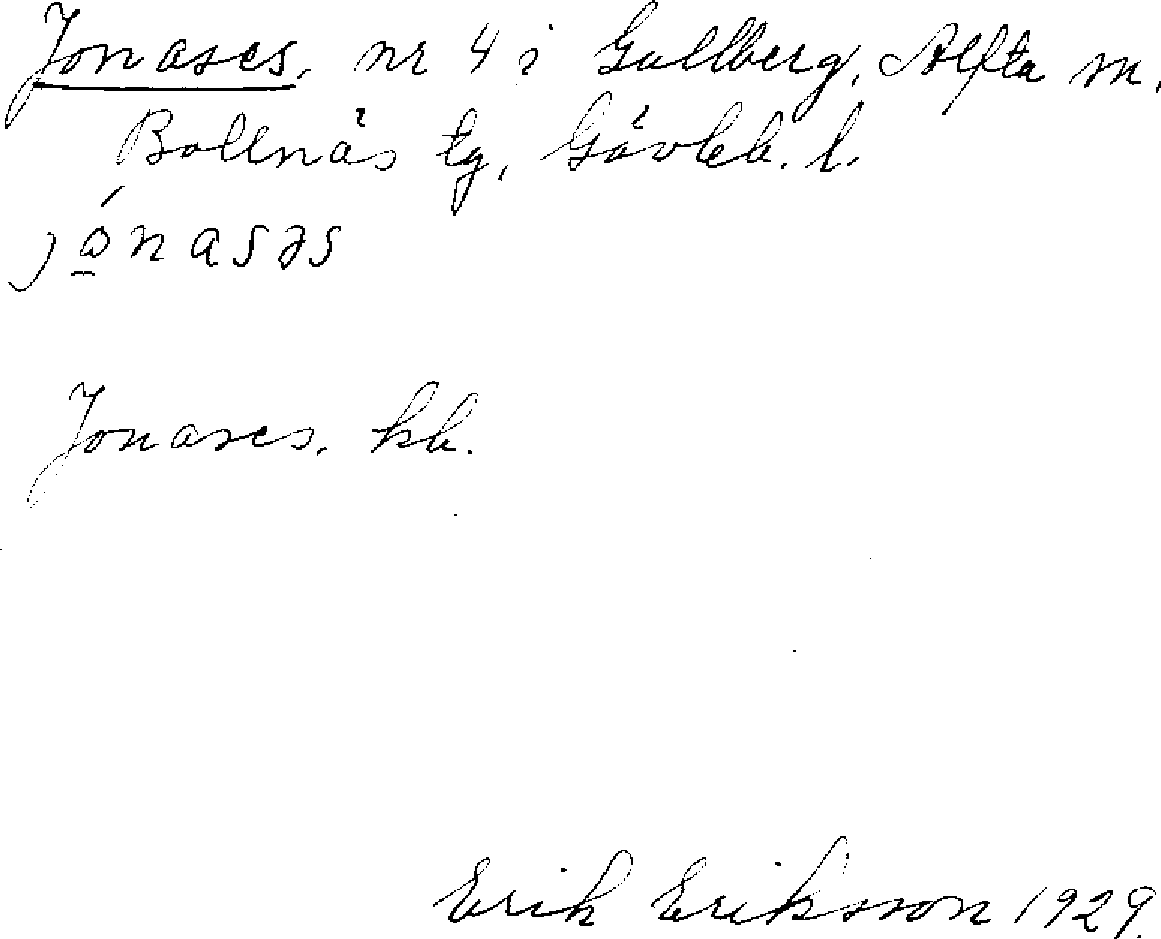 Jonases, nr 4 i Gullberg, Alfta sn.
Bollnäs tg, Gävleb. l.
jó̱nasəs
Jonases. kb.
Erik Eriksson 1929.